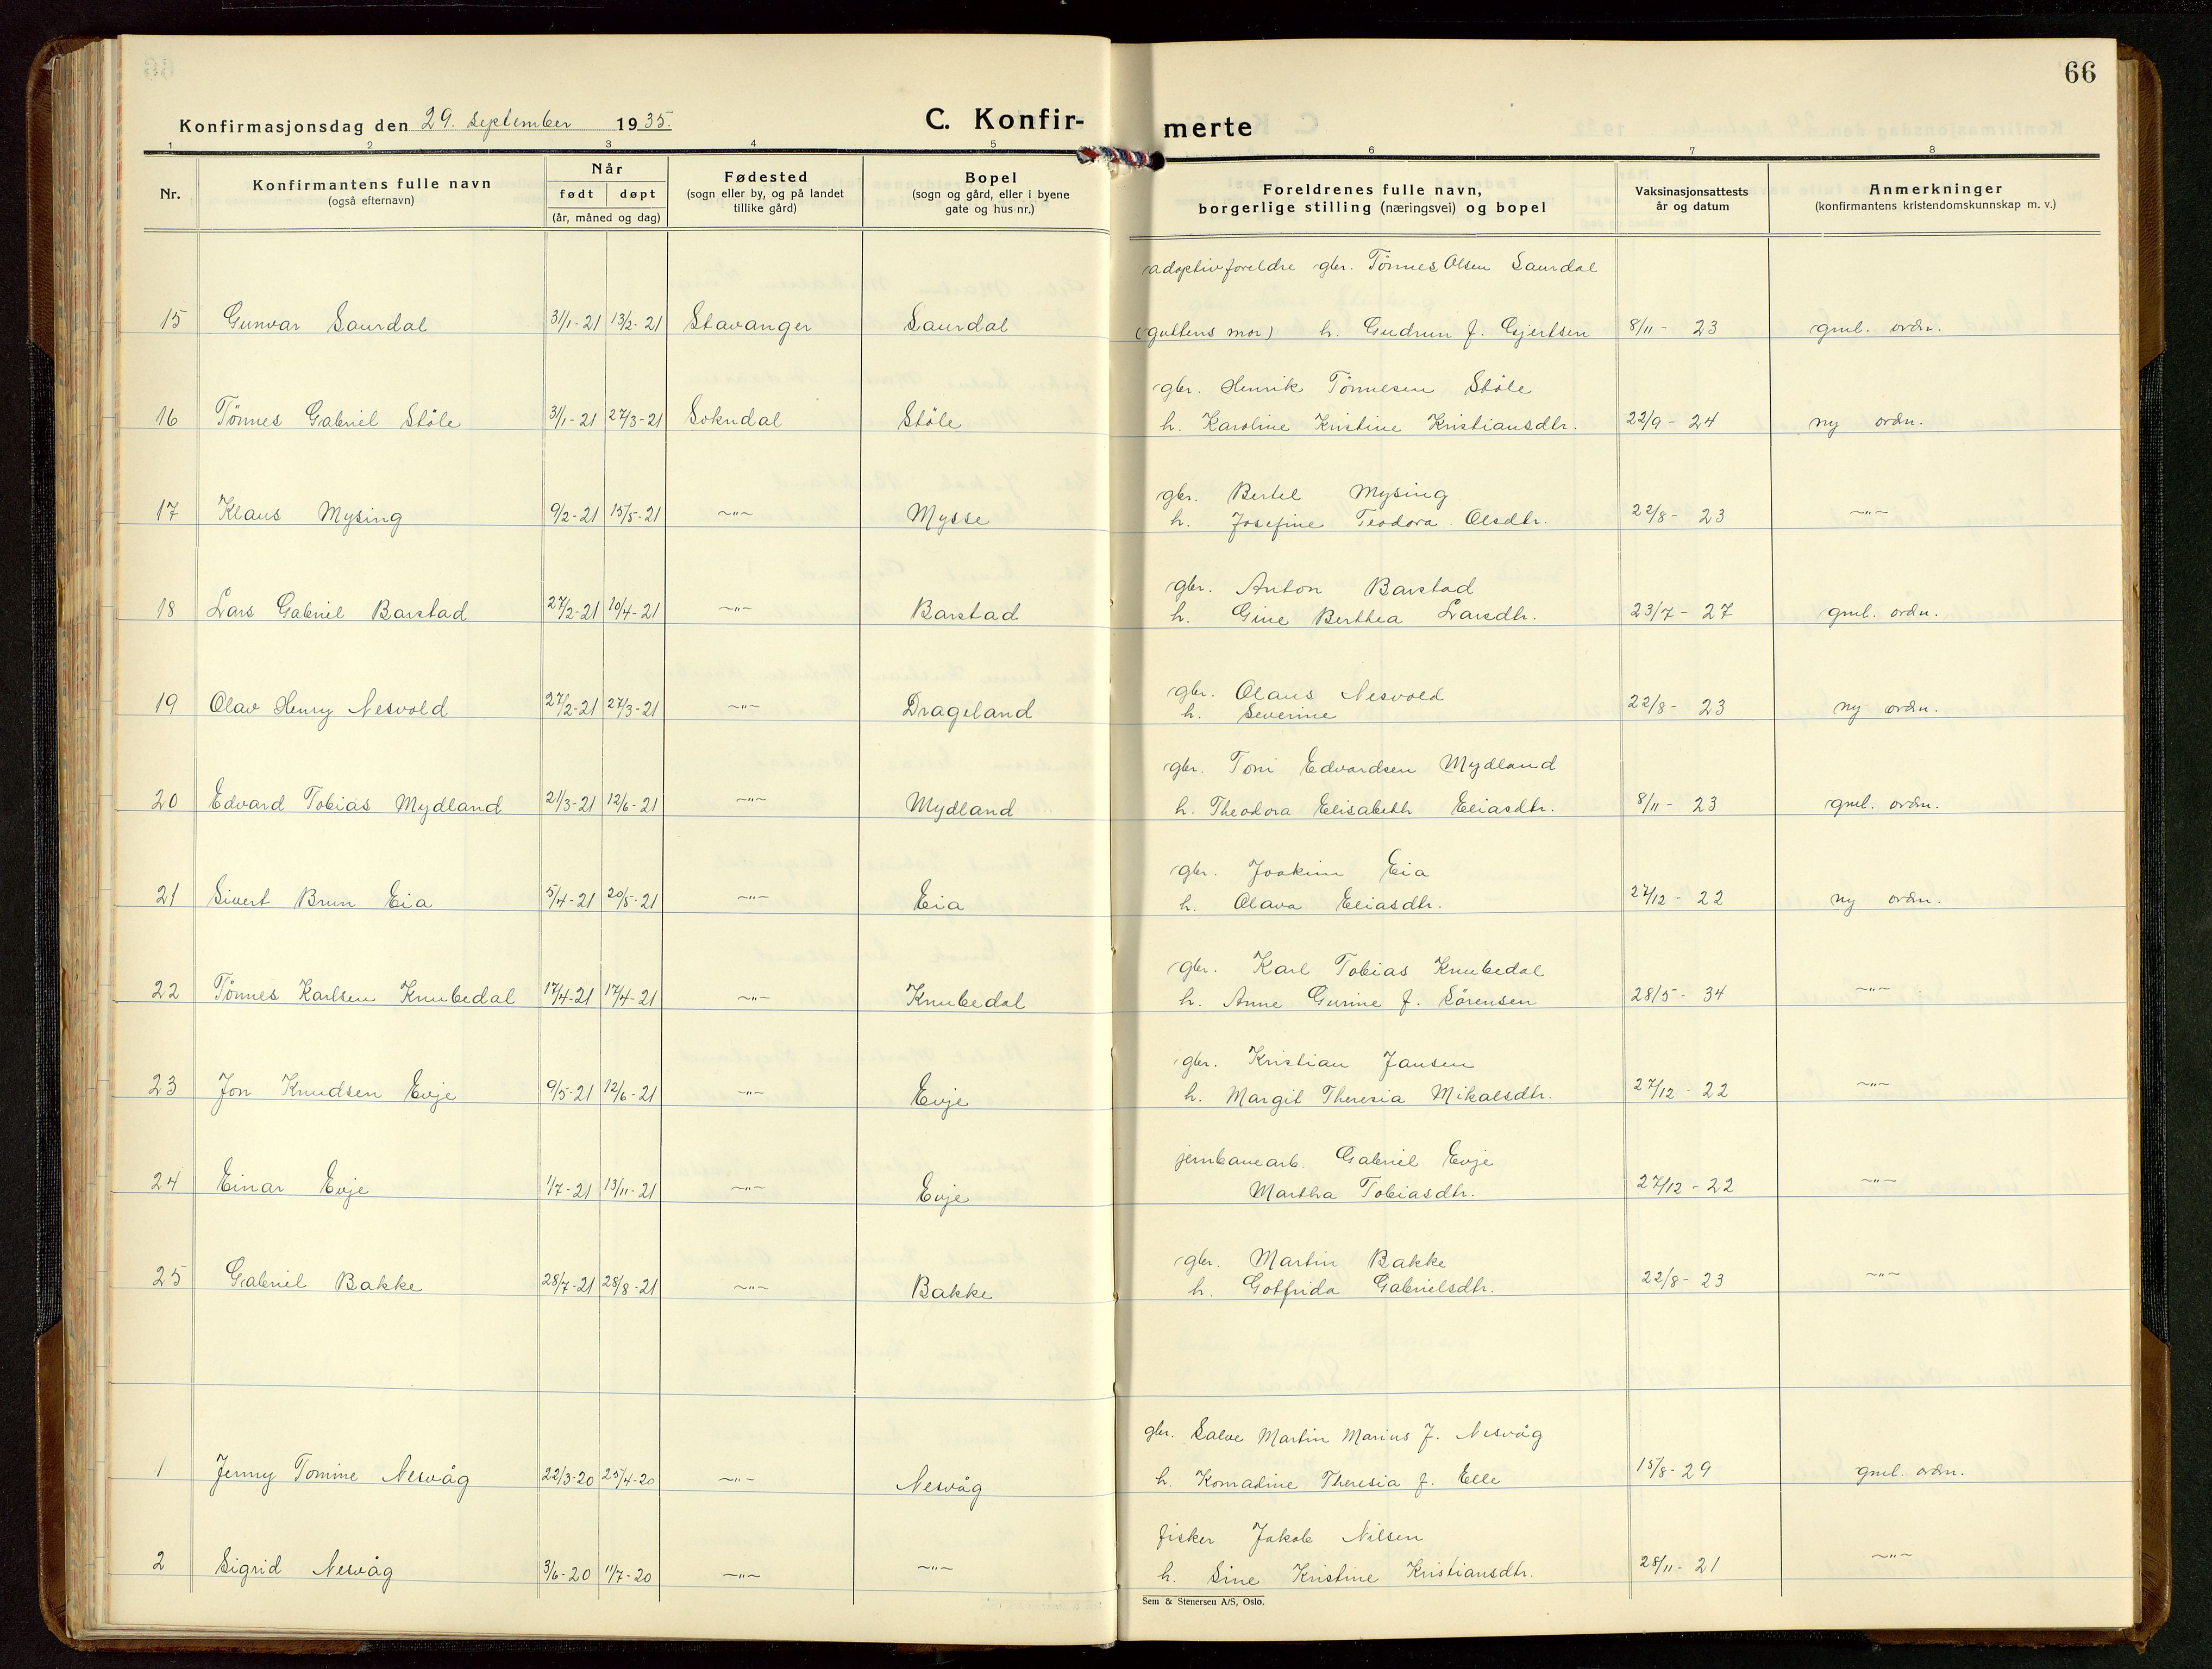 66
Konfirmasjonsdag den 29. september 1935.
C. Konfir-
merte
1 2 3 4 5 6 7 8
Nr.
Konfirmantens fulle navn
(også efternavn)
Når
født døpt
(år, måned og dag)
Fødested
(sogn eller by, og på landet
tillike gård)
Bopel
(sogn og gård, eller i byene
gate og hus nr.)
Foreldrenes fulle navn,
borgerlige stilling (næringsvei) og bopel
Vaksinasjonsattests
år og datum
Anmerkninger
(konfirmantens kristendomskunnskap m. v.)
adoptivforeldre gbr. Tönnes Olsen Saurdal
15 Gunvar Saurdal 31/1-21 13/2-21 Stavanger Saurdal (guttens mor) h. Gudrun f. Gjertsen 8/11 - 23 gml. ordn.
gbr. Henrik Tönnesen Stöle
16 Tönnes Gabriel Stöle 31/1-21 27/3-21 Sokndal Stöle h. Karoline Kristine Kristiansdtr. 22/9 - 24 ny ordn.
gbr. Bertel Mysing
17 Klaus Mysing 9/2-21 15/5-21 ~"~ Mysse h. Josefine Teodora Olsdtr. 22/8 - 23 ~"~
gbr. Anton Barstad
18 Lars Gabriel Barstad 27/2-21 10/4-21 ~"~ Barstad h. Gine Berthea Larsdtr. 23/7 - 27 gml. ordn.
gbr. Olaus Nesvold
19 Olav Henry Nesvold 27/2-21 27/3-21 ~"~ Drageland h. Severine 22/8 - 23 ny ordn.
gbr. Toni Edvardsen Mydland
20 Edvard Tobias Mydland 21/3-21 12/6-21 ~"~ Mydland h. Theodora Elisabeth Eliasdtr. 8/11 - 23 gml. ordn.
gbr. Joakim Eia
21 Sivert Brun Eia 5/4-21 20/5-21 ~"~ Eia h. Olava Eliasdtr. 27/12 - 22 ny ordn.
gbr. Karl Tobias Knubedal
22 Tönnes Karlsen Knubedal 17/4-21 17/4-21 ~"~ Knubedal h. Anne Gurine f. Sörensen 28/5 - 34 ~"~
gbr. Kristian Jansen
23 Jon Knudsen Evje 9/5-21 12/6-21 ~"~ Evje h. Margit Theresia Mikalsdtr. 27/12 - 22 ~"~
jernbanearb. Gabriel Evje
24 Einar Evje 1/7-21 13/11-21 ~"~ Evje Martha Tobiasdtr. 27/12 - 22 ~"~
gbr. Martin Bakke
25 Gabriel Bakke 28/7-21 28/8-21 ~"~ Bakke h. Gotfrida Gabrielsdtr. 22/8 - 23 ~"~
gbr. Salve Martin Marius J. Nesvåg
1 Jenny Tomine Nesvåg 22/3-20 25/4-20 ~"~ Nesvåg h. Konradine Theresia f. Elle 15/8 - 29 gml. ordn.
fisker Jakob Nilsen
2 Sigrid Nesvåg 3/6-20 11/7-20 ~"~ ~"~ h. Sine Kristine Kristiansdtr. 28/11 - 21 ~"~
Sem & Stenersen A/S, Oslo.